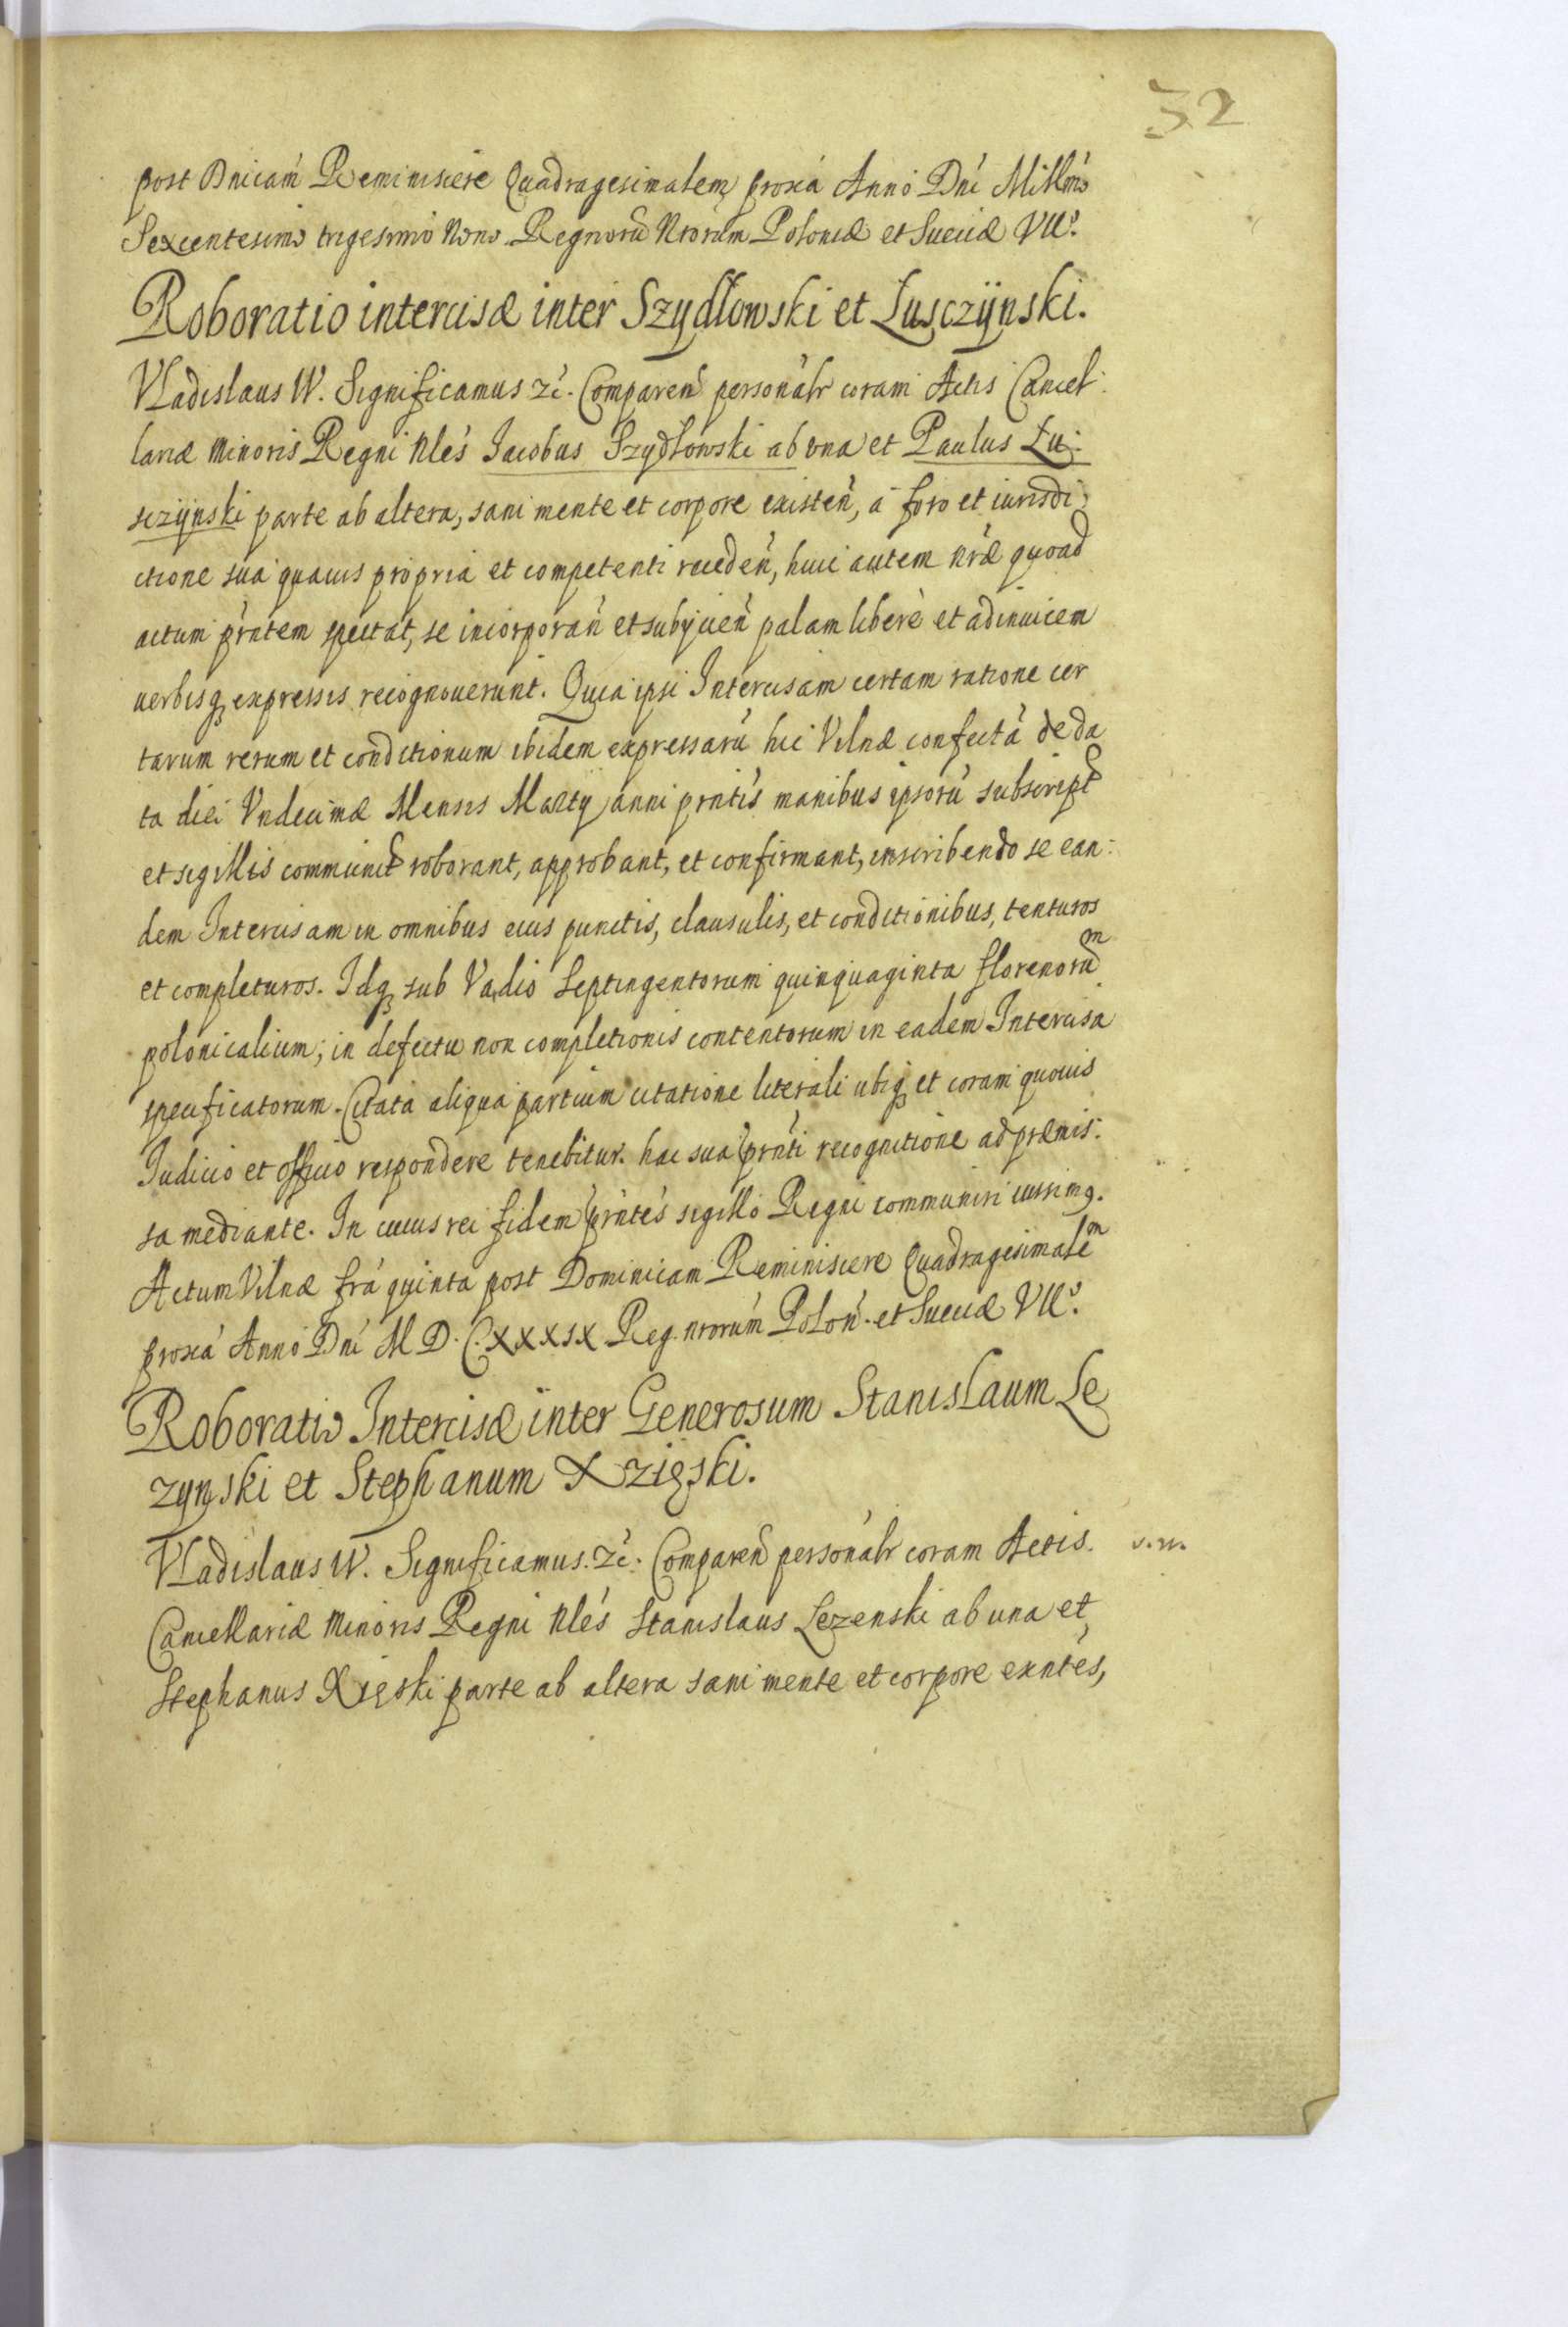 32
post Dnicam̄ Reminiscere Quadragesimalem proxiā Anno Dnī Millmō
Sexcentesimo trigesimo Nono Regnorū Nrorum Poloniæ et Sueciæ VII°.
Roboratio intercisæ inter Szydłowski et Łusczÿnski.
Vladislaus IV. Significamus zc̄. Comparen̄ personalr̄ coram Actis Cancel:
lariæ Minoris Regni Nles̄ Jacobus Szydłowski ab una et Paulus Łu:
sczÿnski parte ab altera, sani mente et corpore existen̄, a foro et iurisdi:
ctione sua quauis propria et competenti receden̄, huic autem nrae quoad
actum pr̄ntem spectat, se incorporan̄ et subÿcien̄ palam liberè et adinuicem
uerbisq, expressis recognouerunt. Quia ipsi Intercisam certam ratione cer
tarum rerum et conditionum ibidem expressarū hic Vilnæ confectā de da
ta diei Undecimæ Mensis Martÿ anni prntis̄ manibus ipsorū subscript
et sigillis communit roborant, approbant, et confirmant, inscribendo se ean:
dem Intercisam in omnibus eius punctis, clausulis, et conditionibus, tenturos
et completuros. Idq, sub Vadio Septingentorum quinquaginta florenorum
polonicalium; in defectu non completionis contentorum in eadem Intercisa
specificatorum. Citata aliqua partium citatione literali ubiq, et coram quouis
Iudicio et officio respondere tenebitur. hac sua prn̄ti recognitione ad præmis:
sa mediante. In cuius rei fidem prn̄tes sigillo Regni communiri iussimg.
Actum Vilnæ frā quinta post Dominicam Reminiscere Quadragesimalem
proxiā Anno Dnī M D. C. XXXIX Reg. nrorum̄ Polon̄. et Sueciæ VII°.
Roboratio Intercisæ inter Generosum Stanislaum Le
zynski et Stephanum Xzięski.
Vladislaus IV. Significamus. zc̄. Comparen̄ personalr̄ coram Actis.
Cancellariæ Minoris Regni Nles̄ Stanislaus Lezenski ab una et,
Stephanus Xięski parte ab altera sani mente et corpore exntes̄,